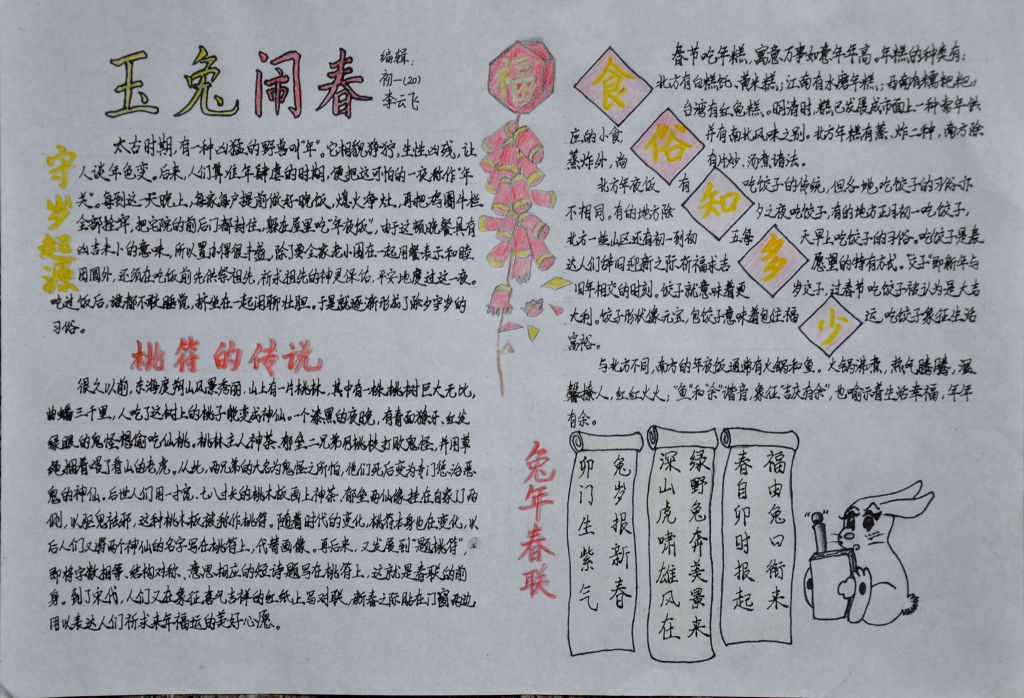 玉兔闹春
编辑:
初一(20)
李云飞
守岁起源
太古时期,有一种凶猛的野兽叫“年”。它相貌狰狞,生性凶残,让
人谈年色变。后来,人们算准年肆虐的时期,便把这可怕的一夜称作“年
关”。每到这一天晚上,每家每户提前做好晚饭,熄火净灶,再把鸡圈牛栏
全部拴牢,把宅院的前后门都封住,躲在屋里吃“年夜饭”,由于这顿晚餐具有
凶吉未卜的意味,所以置办得很丰盛,除了要全家老小围在一起用餐表示和睦
团圆外,还须在吃饭前先供祭祖先,祈求祖先的神灵保佑,平安地度过这一夜。
吃过饭后,谁都不敢睡觉,挤坐在一起闲聊壮胆。于是就逐渐形成了除夕守岁的
习俗。
桃符的传说
很久以前,东海度朔山风景秀丽,山上有一片桃林,其中有一株桃树巨大无比,
曲蟠三千里,人吃了这树上的桃子能变成神仙。一个漆黑的夜晚,有青面獠牙、红发
绿眼的鬼怪想偷吃仙桃。桃林主人神荼、郁垒二兄弟用桃枝打败鬼怪,并用草
绳捆着喂了看山的老虎。从此,两兄弟的大名为鬼怪之所怕,他们死后变为专门惩治恶
鬼的神仙。后世人们用一寸宽、七八寸长的桃木板画上神荼、郁垒两仙像挂在自家门两
侧,以驱鬼祛邪,这种桃木板被称作桃符。随着时代的变化,桃符本身也在变化,以
后人们又将两个神仙的名字写在桃符上,代替画像。再后来,又发展到“题桃符”,
即将字数相等、结构对称、意思相应的短诗题写在桃符上,这就是春联的前
身。到了宋代,人们又在象征喜气吉祥的红纸上写对联,新春之际贴在门窗两边,
用以表达人们祈求来年福运的美好心愿。
福
食俗知多少
春节吃年糕,寓意万事如意年年高。年糕的种类有:
北方有白糕饦、黄米糕;江南有水磨年糕;西南有糯粑粑;
台湾有红龟糕。明清时,糕已发展成市面上一种常年供
应的小食 并有南北风味之别。北方年糕有蒸、炸二种,南方除
蒸炸外,尚 有片炒、汤煮诸法。
北方年夜饭 有 吃饺子的传统,但各地吃饺子的习俗亦
不相同。有的地方除 夕之夜吃饺子,有的地方正月初一吃饺子,
北方一些山区还有初一到初 五每 天早上吃饺子的习俗。吃饺子是表
达人们辞旧迎新之际祈福求吉 愿望的特有方式。“交子”即新年与
旧年相交的时刻。饺子就意味着更 岁交子,过春节吃饺子被认为是大吉
大利。饺子形状像元宝,包饺子意味着包住福 运,吃饺子象征生活
富裕。
与北方不同,南方的年夜饭通常有火锅和鱼。火锅沸煮,热气腾腾,温
馨撩人,红红火火;“鱼”和“余”谐音,象征“吉庆有余”,也喻示着生活幸福,年年
有余。
兔年春联
兔岁报新春
卯门生紫气
绿野兔奔美景来
深山虎啸雄风在
福由兔口衔来
春自卯时报起